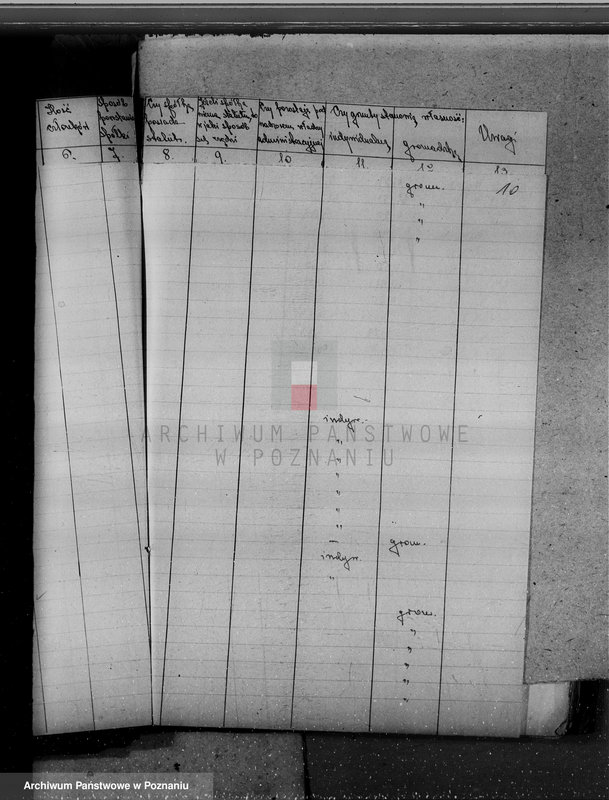 Ilość członków
Sposób powstania spółki
Czy spółka posiada statut.
Jeżeli spółka niema statutu, to w jaki sposób się rządzi
Czy pozostaje pod nadzorem władzy administracyjnej
Czy grunty stanowią własność:
indywidualną
gromadzką
Uwagi
6. 7. 8. 9. 10 11. 12 13.
grom. 10
"
"
indyw.
ARCHIWUM PAŃSTWOWE
"
W POZNANIU
"
"
"
"
"
– grom.
indyw.
"
grom.
"
"
"
"
Archiwum Państwowe w Poznaniu